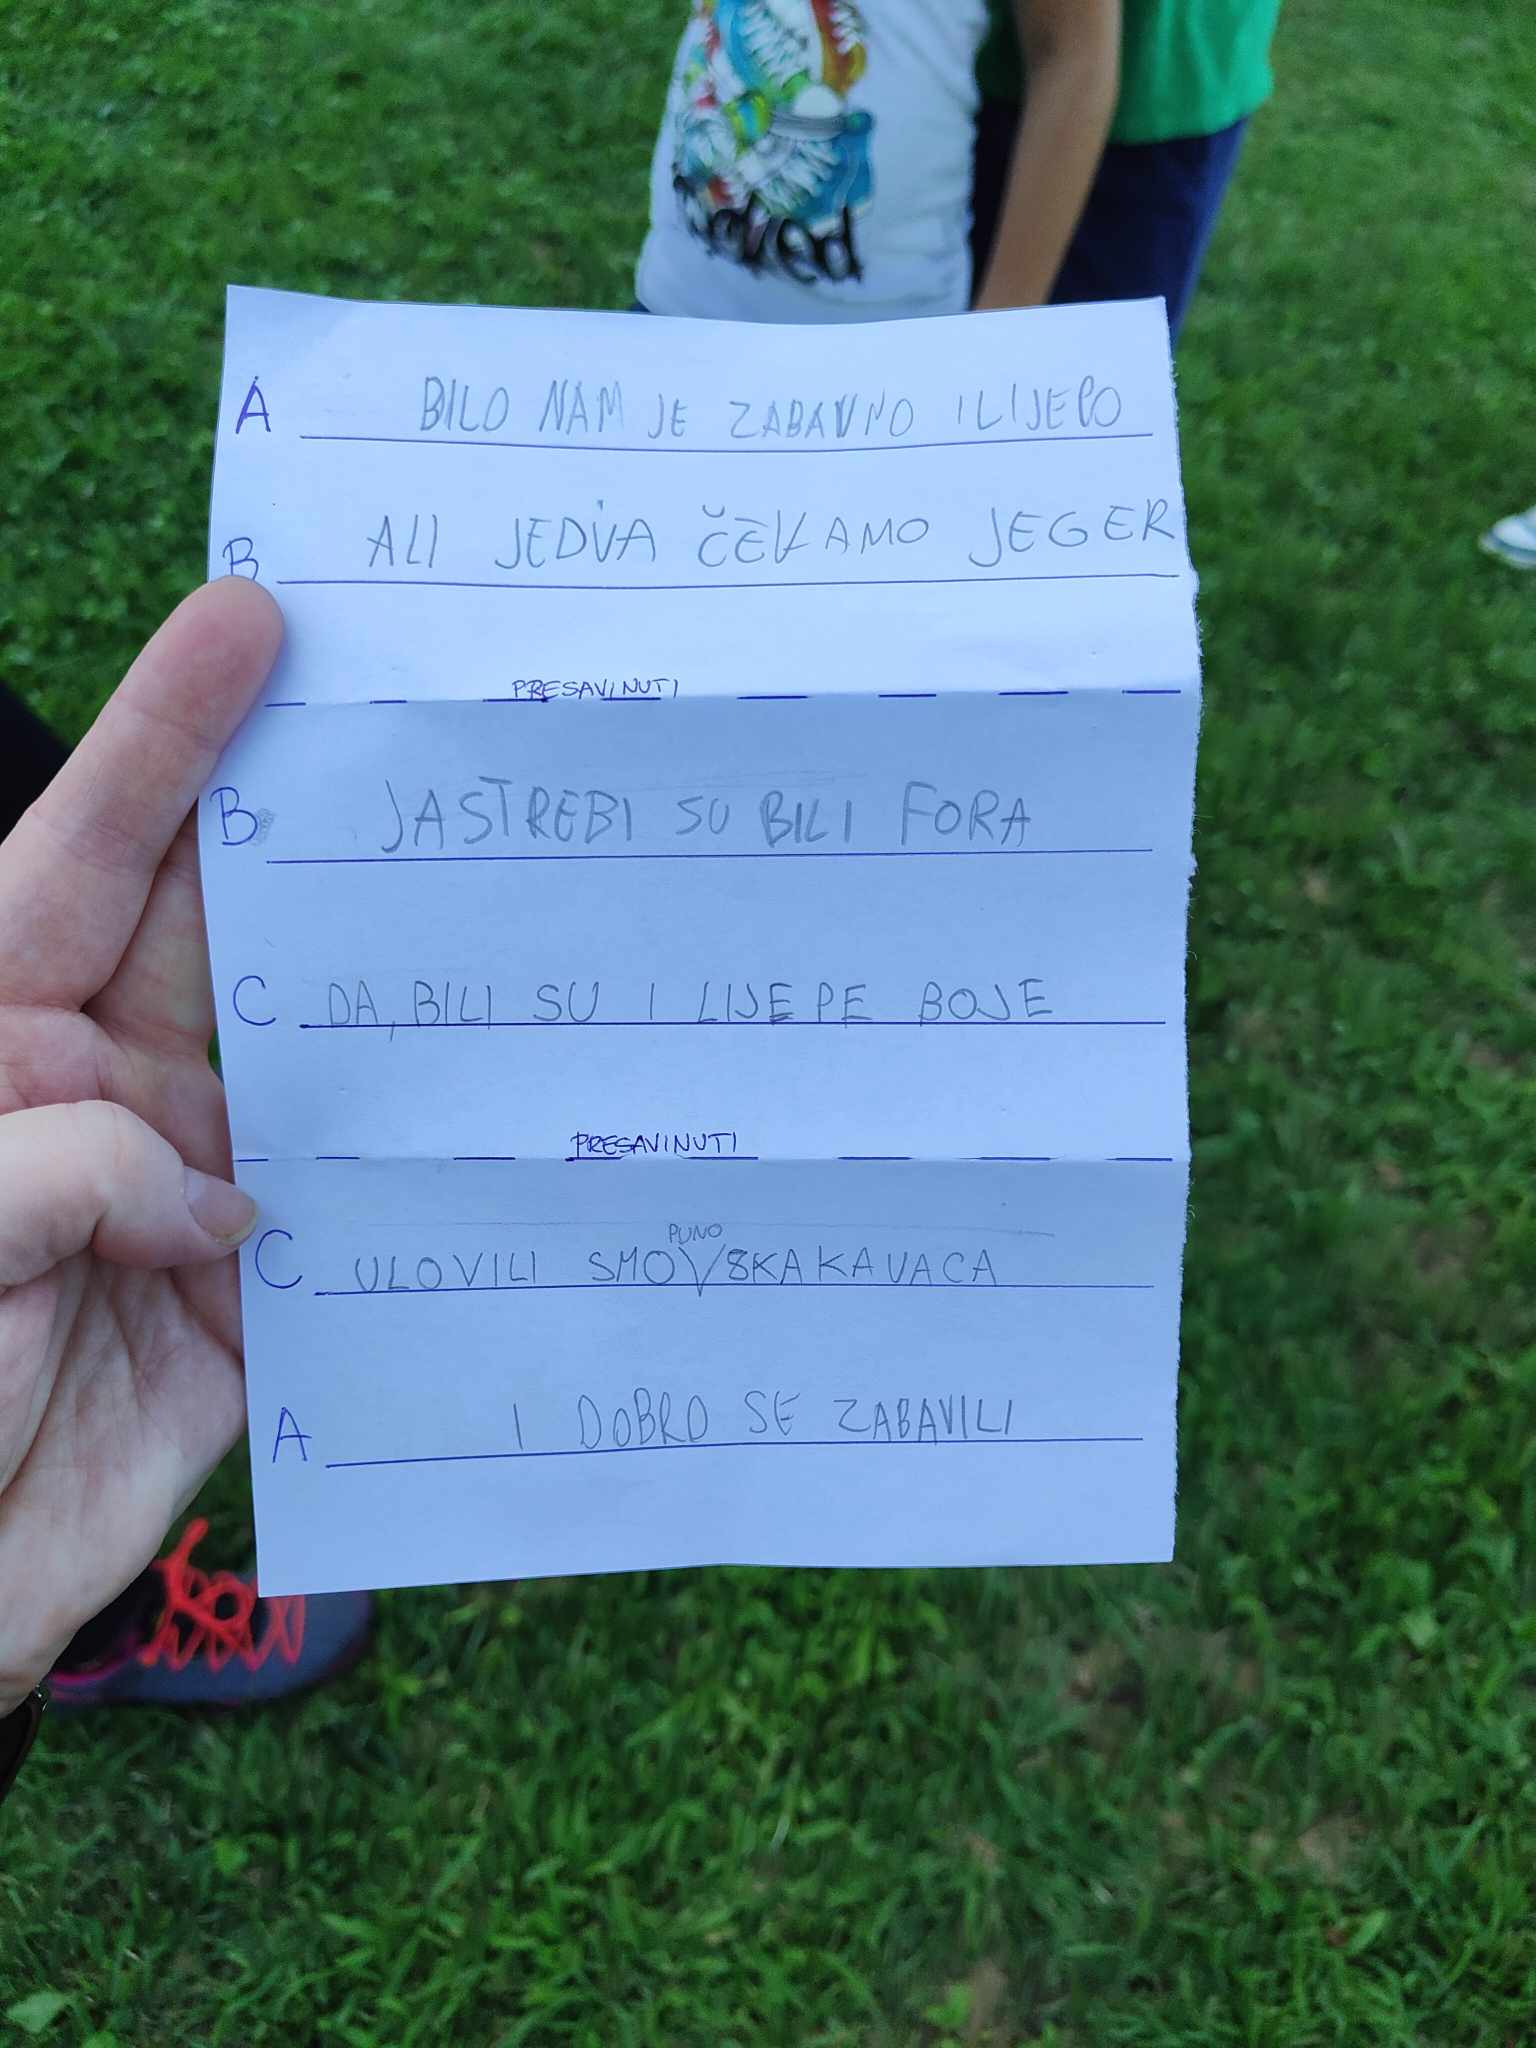 A BILO NAM JE ZABAVNO I LIJEPO
B ALI JEDVA ČEKAMO JEGER
PRESAVINUTI
B JASTREBI SU BILI FORA
C DA, BILI SU I LIJEPE BOJE
PRESAVINUTI
PUNO
C ULOVILI SMO SKAKAVACA
A I DOBRO SE ZABAVILI